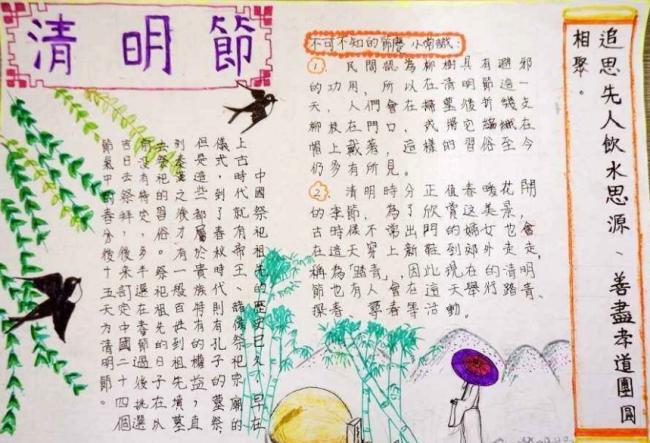 清明節
追思先人飲水思源、善盡孝道團圓
相聚。
不可不知的節慶小常識：
①. 民間認為柳樹具有避邪
的功用，所以在清明節這一
天，人們會在掃墓後折幾支
柳枝在門口，或將它編織在
帽上戴著，這樣的習俗至今
仍多有所見。
②. 清明時分正值春暖花開
的季節，為了欣賞這美景，
古時候不常出門的婦女也會
在這天穿上新鞋到郊外走走，
稱為「踏青」，因此現在的清明
節也有人會在這天舉行踏青、
探春、尋春等活動。
中國祭祀祖先的歷史已久，早在
上古時代就有帝王、諸侯祭祀宗廟的
儀式，到了春秋時代有孔子的墓祭
但是這些都屬於貴族特有的權益，直
到秦漢之後才有一般百姓到祖先墳墓
去祭祀的習俗。祭祀祖先的日子在以
前沒有特定，多半選在春節過後挑選
吉日去祭拜，後來訂定中國二十四個
節氣中的春分後十五天為清明節。